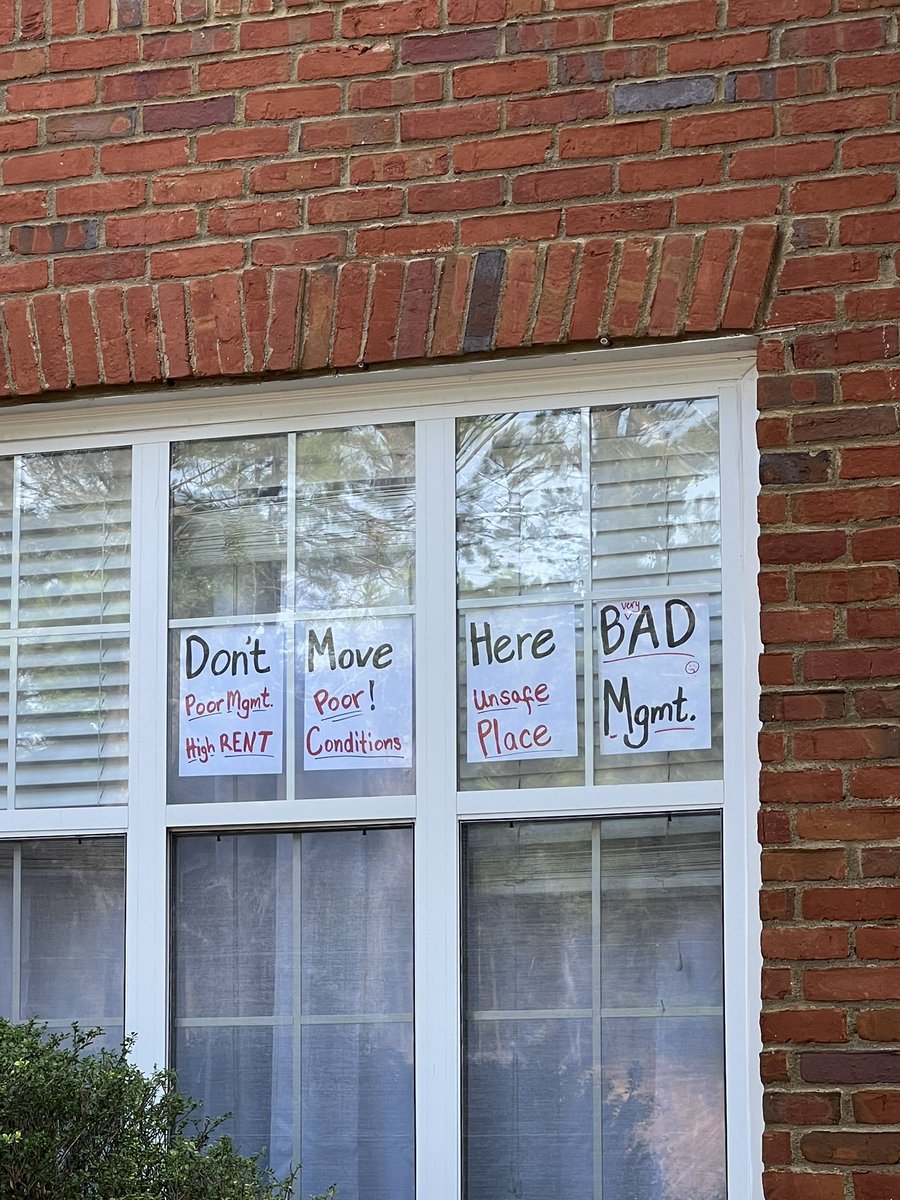 Don't
Poor Mgmt.
High RENT
Move
Poor!
Conditions
Here
Unsafe
Place
very
BAD
Mgmt.